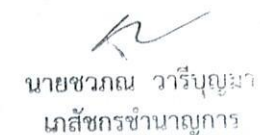 นายชวภณ วารีบุญมา
เภสัชกรชำนาญการ